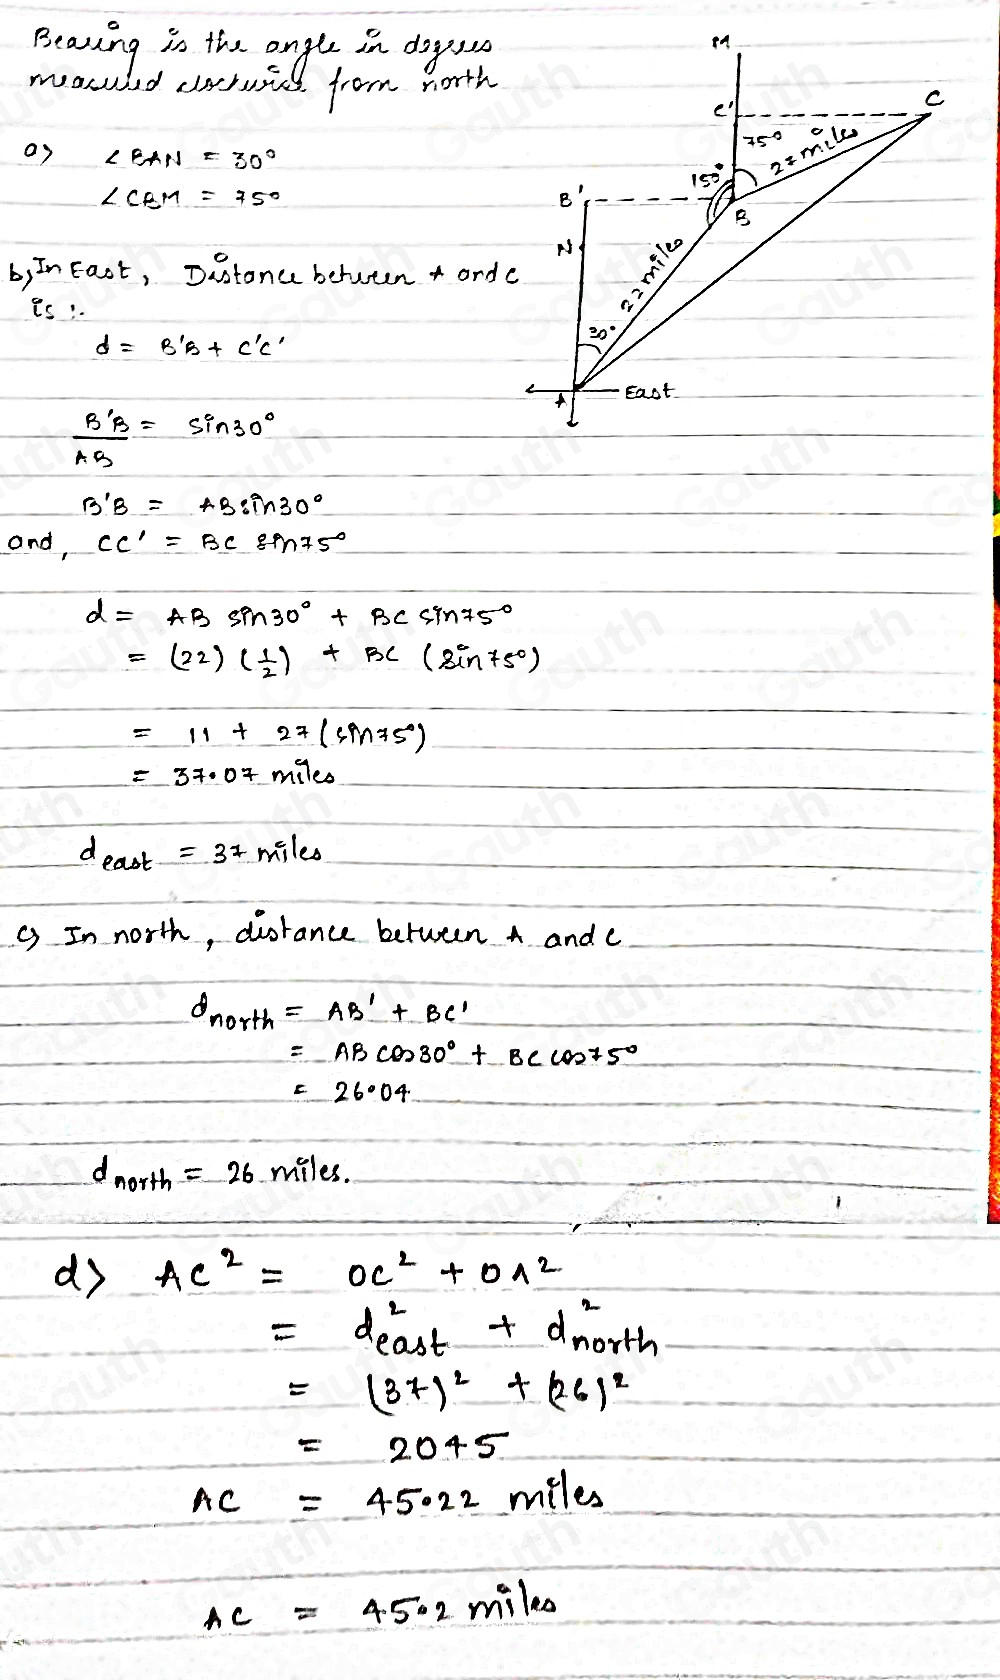 Bearing is the angle in degrees
measured clockwise from north
a) ∠BAN = 30°
∠CBM = 75°
b) In East, Distance between A and C
is :-
d = B'B + C'C'
B'B/AB = sin30°
B'B = ABsin30°
and, CC' = BC sin75°
d = AB sin30° + BC sin75°
= (22) (1/2) + BC (sin75°)
= 11 + 27 (sin75°)
= 37.07 miles
d east = 37 miles
c) In north, distance between A and C
d north = AB' + BC'
= AB cos30° + BC cos75°
= 26.04
d north = 26 miles.
M
C'
C
75°
27 miles
150°
B'
B
N
22 miles
30°
A
East
1
d) AC² = OC² + OA²
= d²east + d²north
= (37)² + (26)²
= 2045
AC = 45.22 miles
AC = 45.2 miles
Gauth